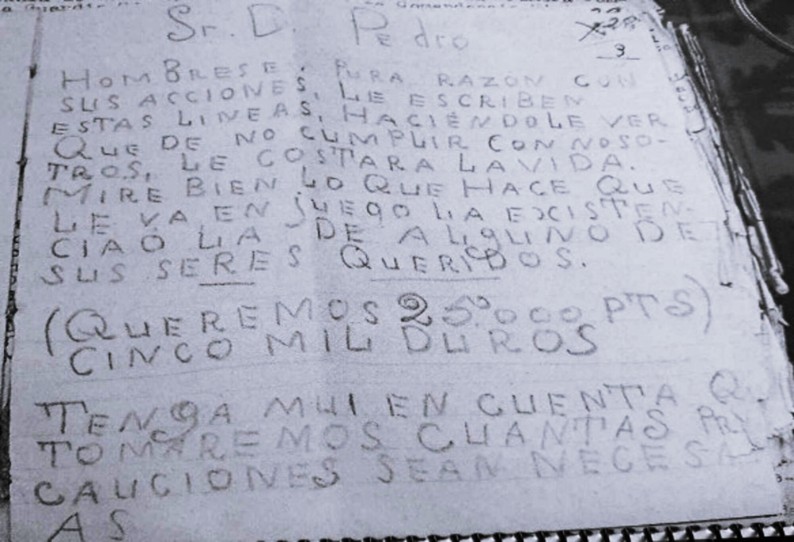 Sr. D. Pedro
3
HOMBRESE. PURA RAZON CON
SUS ACCIONES, LE ESCRIBEN
ESTAS LINEAS, HACIÉNDOLE VER
QUE DE NO CUMPLIR CON NOSO-
TROS, LE COSTARA LA VIDA.
MIRE BIEN LO QUE HACE QUE
LE VA EN JUEGO LA EXISTEN-
CIA O LA DE ALGUNO DE
SUS SERES QUERIDOS.
(QUEREMOS 25.000 PTS)
CINCO MIL DUROS
TENGA MUI EN CUENTA QU
TOMAREMOS CUANTAS PR
CAUCIONES SEAN NECESA
AS